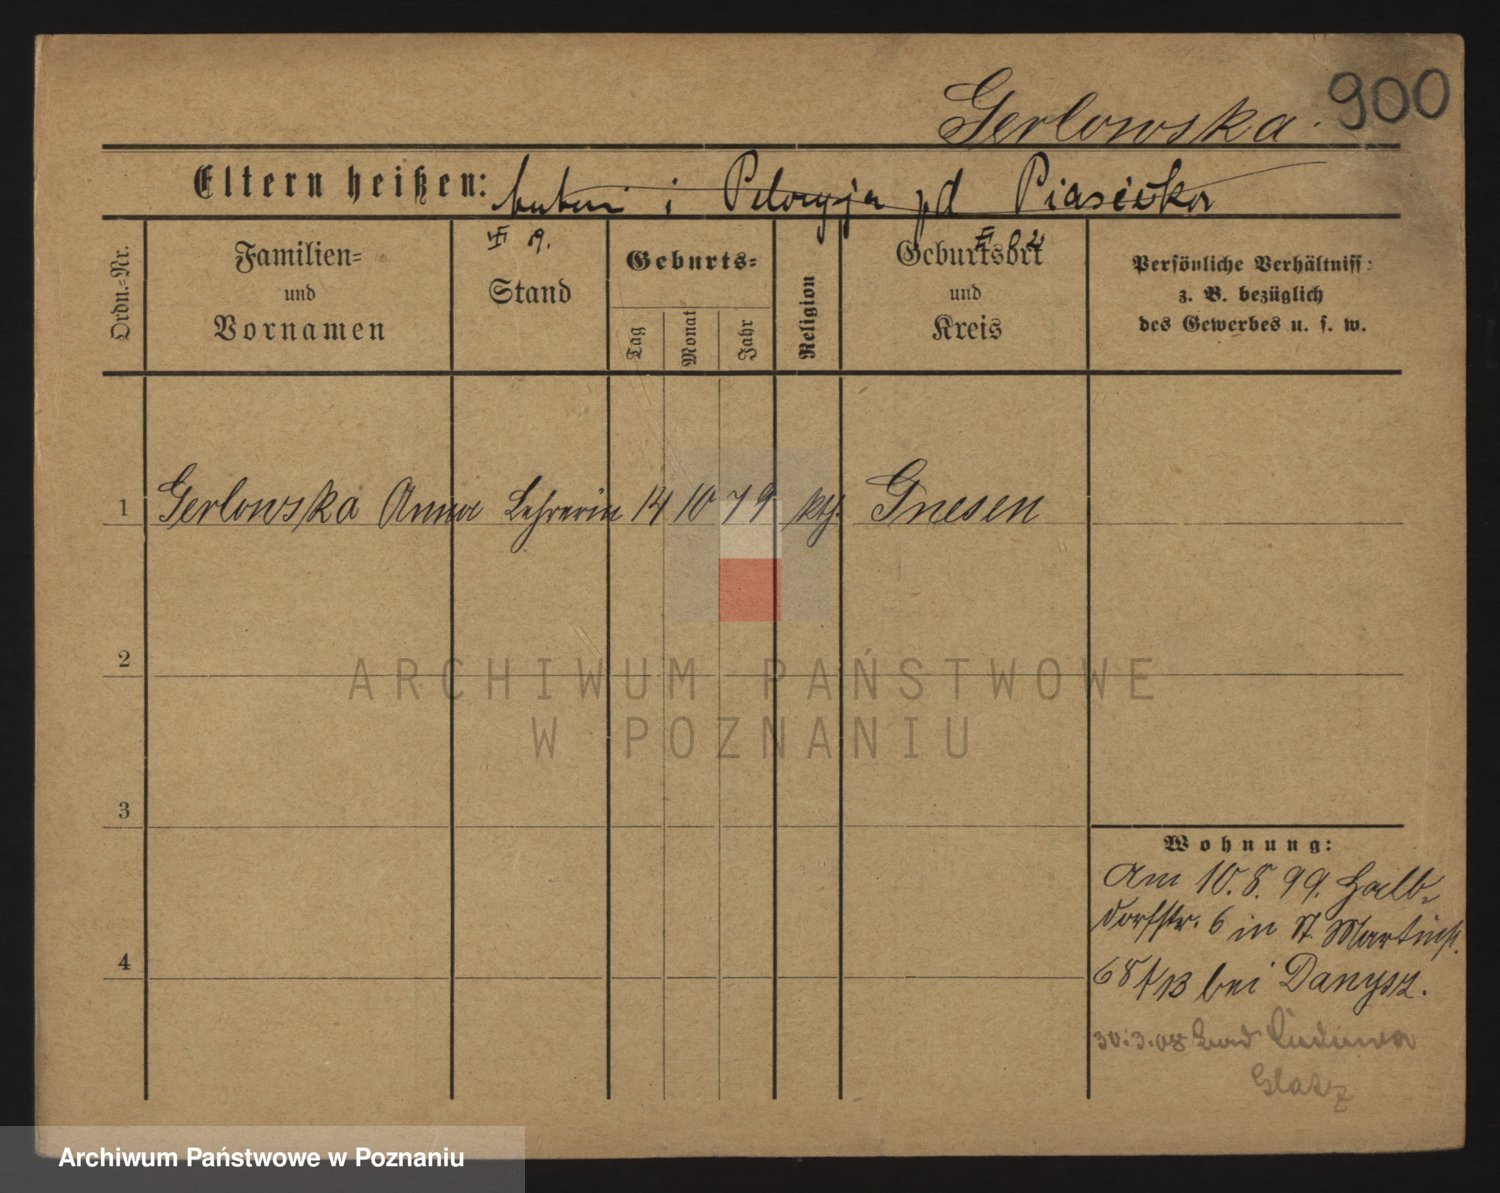 Gerlowska. 900
Eltern heißen: Antoni i Pelagja pd Piasecka
Ordn.-Nr.
Familien=
und
Vornamen
Stand
Geburts=
Tag
Monat
Jahr
Religion
Geburtsort
und
Kreis
Persönliche Verhältniss=
z. B. bezüglich
des Gewerbes u. s. w.
1 Gerlowska Anna Lehrerin 14 10 79 kth. Gnesen
2
3
4
Wohnung:
Am 10.8.99.
6 in St. Martinst.
68 bei Danysz.
30.3.08 Bad Kudowa
Glatz
ARCHIWUM PAŃSTWOWE
W POZNANIU
Archiwum Państwowe w Poznaniu